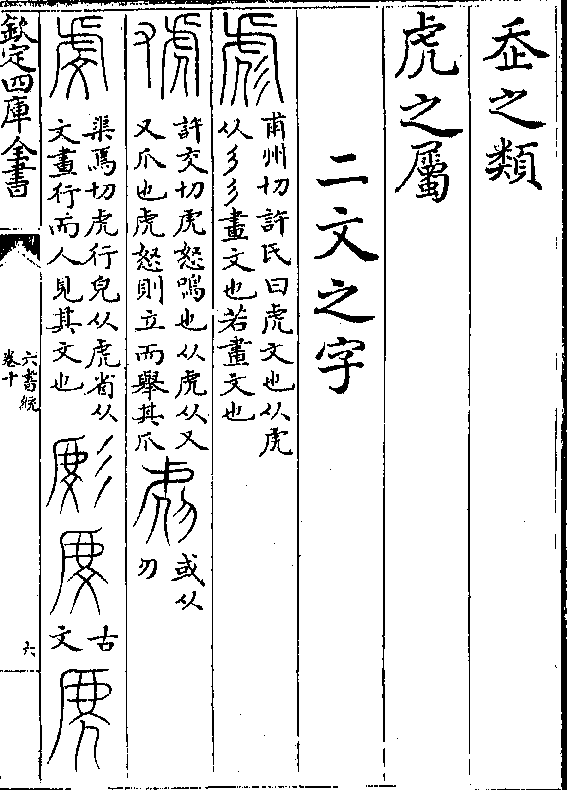 之類
虎之屬
二文之字
彪
甫州切許氏曰虎文也从虎
从彡彡畫文也若畫文也
許交切虎怒鳴也从虎从又
又爪也虎怒則立而舉其爪
或从
虔
渠焉切虎行皃从虎省从
文畫行而人見其文也
古
文
欽定四庫全書
六書統
卷十
六